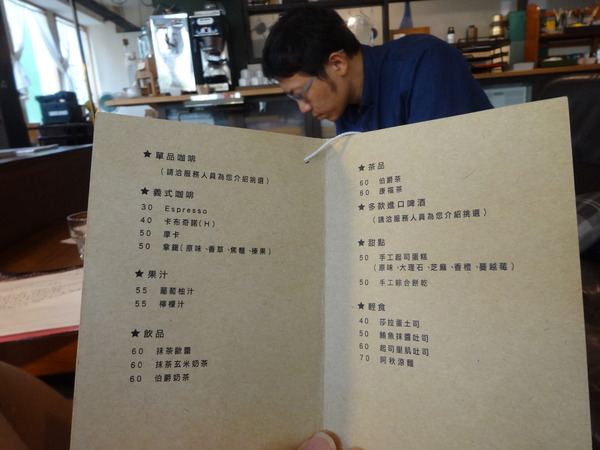 ★單品咖啡
(請洽服務人員為您介紹挑選)
★義式咖啡
30 Espresso
40 卡布奇諾(H)
50 摩卡
50 拿鐵(原味、香草、焦糖、榛果)
★果汁
55 葡萄柚汁
55 檸檬汁
★飲品
60 抹茶歐蕾
60 抹茶玄米奶茶
60 伯爵奶茶
★茶品
60 伯爵茶
60 康福茶
★多款進口啤酒
(請洽服務人員為您介紹挑選)
★甜點
50 手工起司蛋糕
(原味、大理石、芝麻、香橙、蔓越莓)
50 手工綜合餅乾
★輕食
40 莎拉蛋土司
50 鮪魚抹醬吐司
60 起司里肌吐司
70 阿秋涼麵